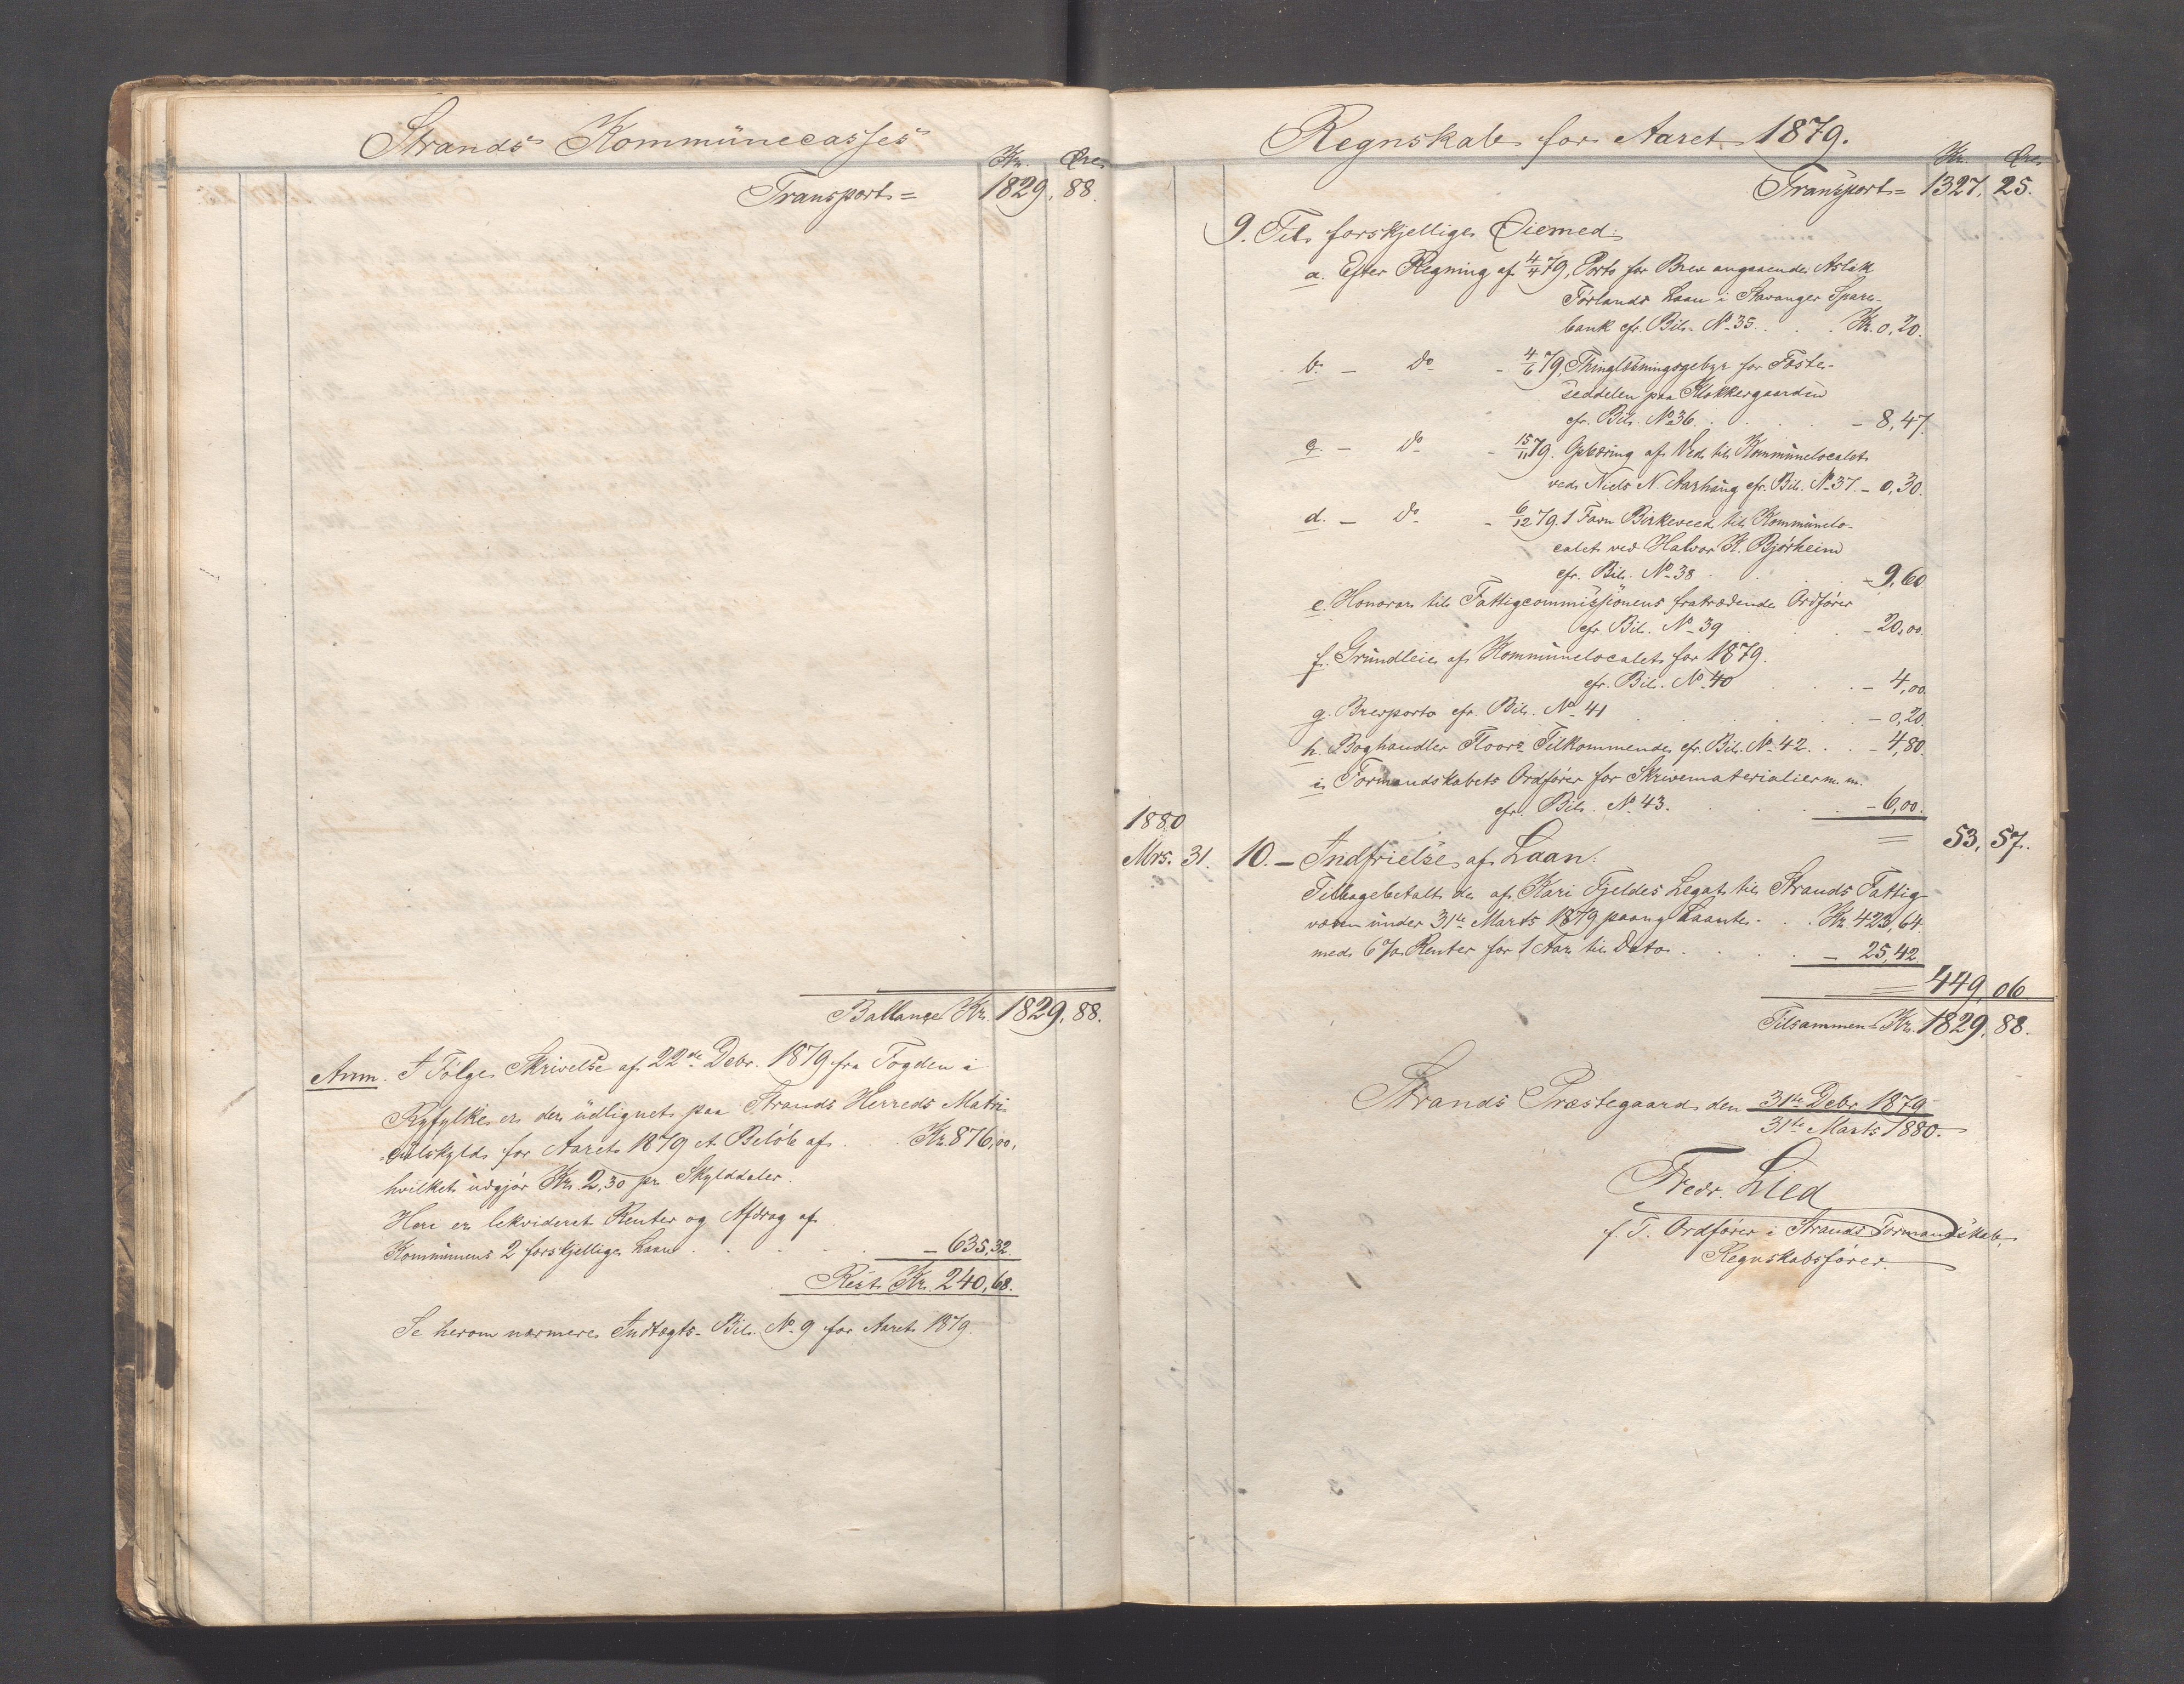 Strands Kommünecasses
Kr. Øre
Transport = 1829, 88.
Ballance Kr. 1829, 88.
Anm. I Følge Skrivelse af 22de Debr. 1879 fra Fogden i
Ryfylke er der üdlignet paa Strands Herreds Matri-
culskyld for Aaret 1879 et Beløb af . . Kr. 876,00,
hvilket üdgjør Kr. 2,30 pr. Skylddaler.
Heri er lekvideret Renter og Afdrag af
Kommünens 2 forskjellige Laan . . . . — 635,32.
Rest Kr. 240,68.
Se herom nærmere Indtægts-Bil. No 9 for Aaret 1879.
Regnskab for Aaret 1879.
Kr. Øre
Transport = 1327, 25.
9. Til forskjellige Øiemed:
a. Efter Regning af 4/4 79, Porto for Brev angaaende Aslak
Førlands Laan i Stavanger Spare-
bank cfr. Bil. No 35 . . . Kr. 0,20.
b. — Do — 4/6 79, Thinglæsningsgebyr for Fæste-
seddelen paa Klokkergaarden
cfr. Bil. No 36 . . . . — 8,47.
c. — Do — 15/11 79. af Ved til Kommünelocalet
ved Niels N. Aarhaug cfr. Bil. No 37. — 0,30.
d. — Do — 6/12 79. 1 Favn Birkeveed til Kommünelo-
calet ved Halvor K. Bjørheim
cfr. Bil. No 38 . . . . — 9,60
e. Honorar til Fattigcommissionens fratrædende Ordfører
cfr. Bil. No 39 . . . — 20,00.
f. Gründleie af Kommünelocalet for 1879.
cfr. Bil. No 40 . . . — 4,00.
g. Brevporto cfr. Bil. No 41 . . . . . . — 0,20.
h. Boghandler Floors Tilkommende cfr. Bil. No 42 . . . — 4,80.
i. Formandskabets Ordfører for Skrivematerialier m. m.
cfr. Bil. No 43. . . . . — 6,00.
= 53, 57.
1880
Mrs. 31. 10. — Indfrielse af Laan:
Tilbagebetalt de af Kari Fjeldes Legat til Strands Fattig-
væsen ünder 31te Marts 1879 paany Laante . . . Kr. 423,64.
med 6% Renter for 1 Aar til Dato . . . . — 25,42.
= 449, 06
Tilsammen Kr. 1829, 88.
Strands Præstegaard den 31te Debr. 1879
31te Marts 1880.
Fredr. Lied
f. T. Ordfører i Strands Formandskab,
Regnskabsfører.